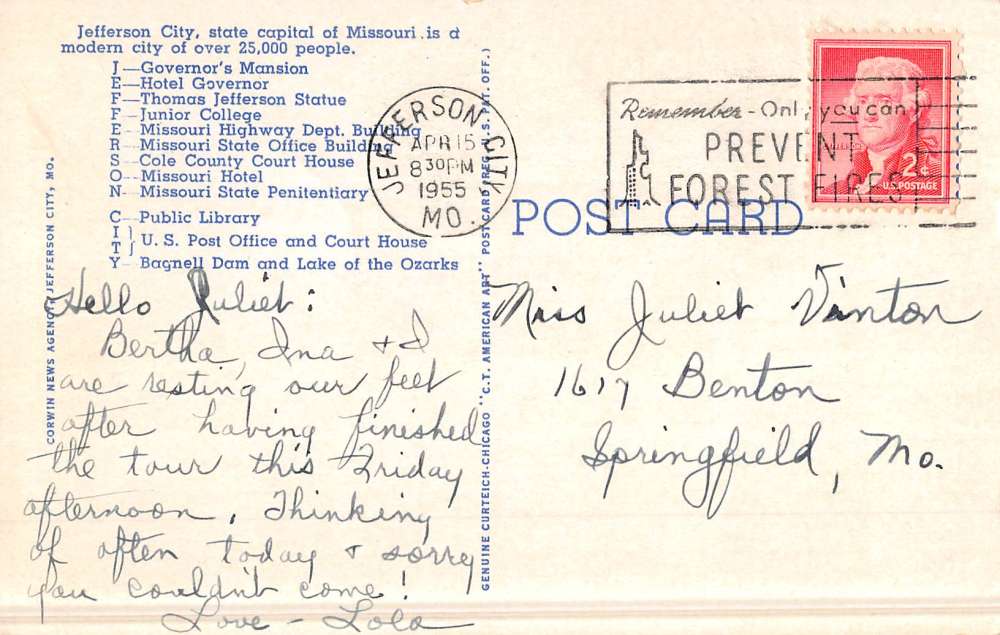 Jefferson City, state capital of Missouri is a
modern city of over 25,000 people.
J—Governor's Mansion
E—Hotel Governor
F—Thomas Jefferson Statue
F—Junior College
E—Missouri Highway Dept. Building
R—Missouri State Office Building
S—Cole County Court House
O—Missouri Hotel
N—Missouri State Penitentiary
C—Public Library
I
T } U. S. Post Office and Court House
Y—Bagnell Dam and Lake of the Ozarks
CORWIN NEWS AGENCY, JEFFERSON CITY, MO.
Hello Juliet:
Bertha, Ina & I
are resting our feet
after having finished
the tour this Friday
afternoon. Thinking
of often today & sorry
you couldn't come!
Love - Lola
GENUINE CURTEICH-CHICAGO "C.T. AMERICAN ART" POST CARD (REG. U.S. PAT. OFF.)
JEFFERSON CITY
APR 15
8 30 PM
1955
MO.
Remember - Only you can
PREVENT
FOREST FIRES
2¢
U.S. POSTAGE
POST CARD
Miss Juliet Vinton
1617 Benton
Springfield, Mo.